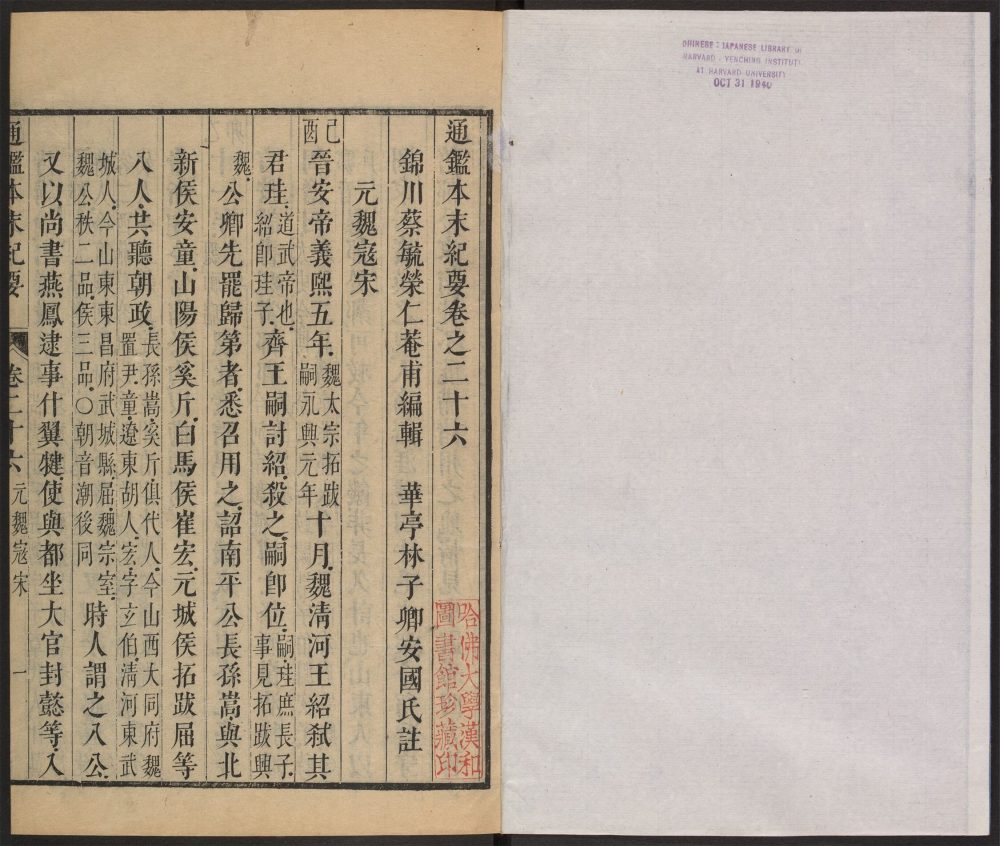 CHINESE - JAPANESE LIBRARY OF
HARVARD - YENCHING INSTITUTE
AT HARVARD UNIVERSITY
OCT 31 1940
通鑑本末紀要卷之二十六
錦川蔡毓榮仁菴甫編輯　華亭林子卿安國氏註
哈佛大學漢和
圖書館珍藏印
元魏寇宋
己酉晉安帝義熙五年魏太宗拓跋嗣永興元年十月魏清河王紹弒其
君珪道武帝也紹卽珪子齊王嗣討紹殺之嗣卽位嗣珪庶長子事見拓跋興
魏公卿先罷歸第者悉召用之詔南平公長孫嵩與北
新侯安童山陽侯奚斤白馬侯崔宏元城侯拓跋屈等
八人共聽朝政長孫嵩奚斤俱代人今山西大同府魏置尹童遼東胡人宏字玄伯清河東武
城人今山東東昌府武城縣屈魏宗室魏公秩二品侯三品○朝音潮後同時人謂之八公
又以尚書燕鳳逮事什翼犍使與都坐大官封懿等入
通鑑本末紀要　卷二十六　元魏寇宋　一